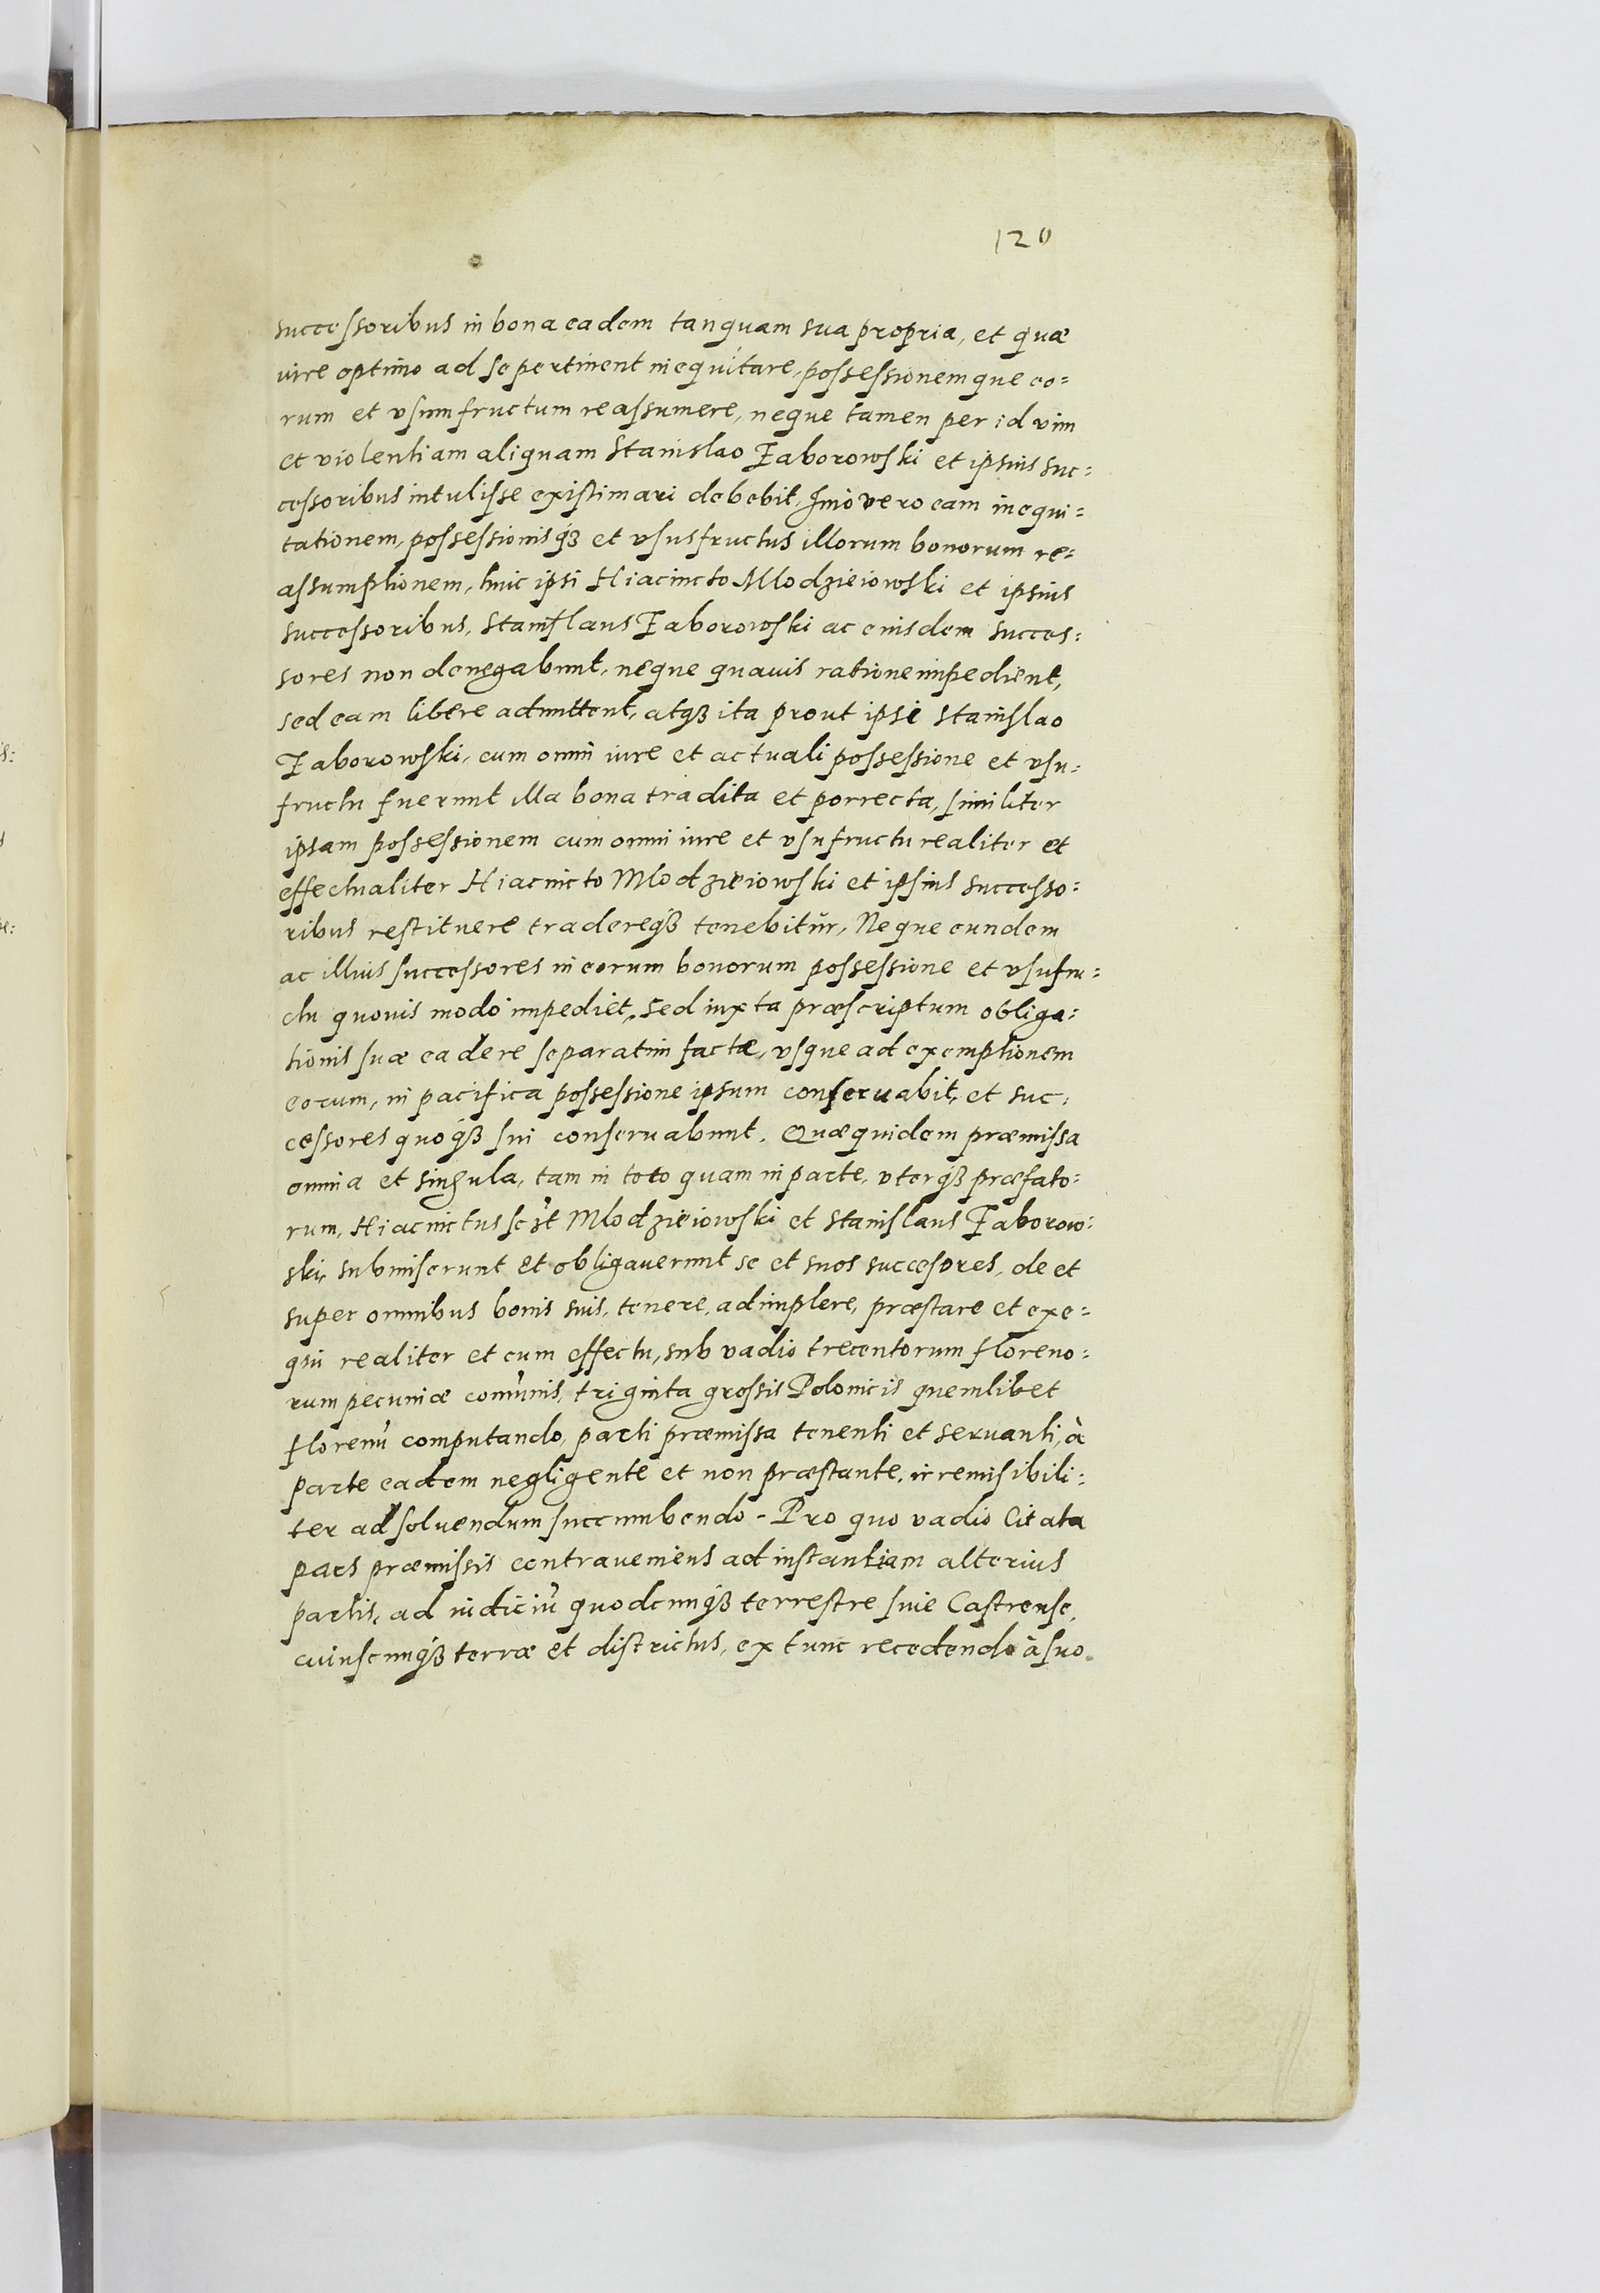 120
successoribus in bona eadem tanquam sua propria, et quæ
iure optimo ad se pertinent inequitare, possessionemque eo=
rum et vsumfructum reassumere, neque tamen per id vim
et violentiam aliquam Stanislao Taborowski et ipsius suc=
cessoribus intulisse existimari debebit, Imò vero eam inequi=
tationem, possessionisqꝫ et vsusfructus illorum bonorum re=
assumptionem, huic ipsi Hiacincto Mlodzieiowski et ipsius
successoribus, Stanislaus Taborowski ac eiusdem succes=
sores non denegabunt, neque quauis ratione impedient,
sed eam libere admittent, atqꝫ ita prout ipsi Stanislao
Taborowski, cum omni iure et actuali possessione et vsu=
fructu fuerunt illa bona tradita et porrecta, similiter
ipsam possessionem cum omni iure et vsufructu realiter et
effectualiter Hiacincto Mlodzieiowski et ipsius successo=
ribus restituere tradereqꝫ tenebitur, Neque eundem
ac illius successores in eorum bonorum possessione et vsufru=
ctu quouis modo impediet, sed iuxta præscriptum obliga=
tionis suæ ea de re separatim factæ, vsque ad exemptionem
eorum, in pacifica possessione ipsum conseruabit, et suc=
cessores quoqꝫ sui conseruabunt. Quæquidem præmissa
omnia et singula, tam in toto quam in parte, vterqꝫ præfato=
rum, Hiacinctus sc̃t Mlodzieiowski et Stanislaus Taborow=
ski, submiserunt et obligauerunt se et suos succesores, de et
super omnibus bonis suis, tenere, adimplere, præstare et exe=
qui realiter et cum effectu, sub vadio trecentorum floreno=
rum pecuniæ com̃unis, triginta grossis Polonicis quemlibet
florenũ computando, parti præmissa tenenti et seruanti, à
parte eadem negligente et non præstante, irremisibili=
ter ad soluendum succumbendo. Pro quo vadio Citata
pars præmissis contraueniens ad instantiam alterius
partis, ad iudiciũ quodcunqꝫ terrestre siue Castrense,
cuiuscunqꝫ terræ et districtus, ex tunc recedendo à suo